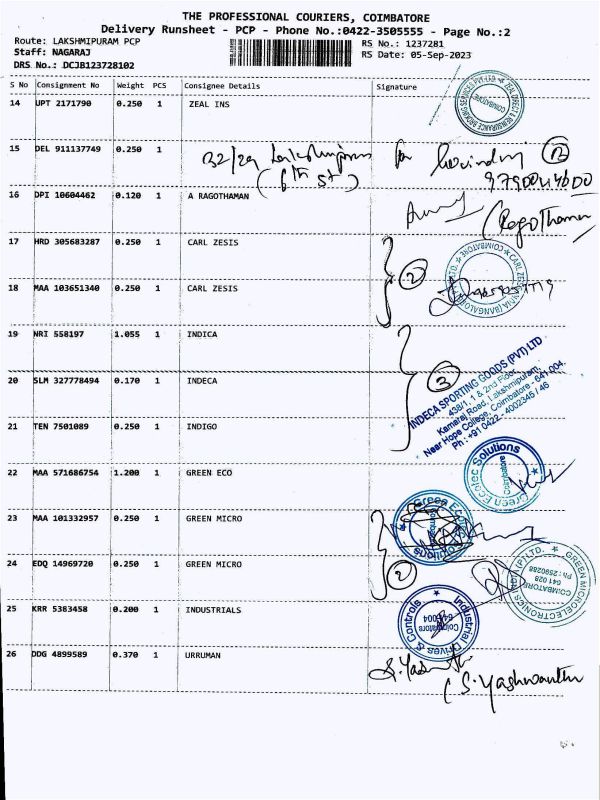 THE PROFESSIONAL COURIERS, COIMBATORE
Delivery Runsheet - PCP - Phone No.:0422-3505555 - Page No.:2
Route: LAKSHMIPURAM PCP
RS No.: 1237281
Staff: NAGARAJ
RS Date: 05-Sep-2023
DRS No.: DCJB123728102
S No Consignment No Weight PCS Consignee Details Signature
14 UPT 2171790 0.250 1 ZEAL INS
ZEAL DIRECT & REINSURANCE BROKING SERVICES PVT LTD
COIMBATORE
15 DEL 911137749 0.250 1
32/29 Lakshmipuram
(6th st)
for Govindraj
9790044600
16 DPI 10604462 0.120 1 A RAGOTHAMAN
(RagoThaman
17 HRD 305683287 0.250 1 CARL ZESIS
2
18 MAA 103651340 0.250 1 CARL ZESIS
19 NRI 558197 1.055 1 INDICA
20 SLM 327778494 0.170 1 INDECA
3
INDECA SPORTING GOODS (PVT) LTD
438/1, 1 & 2nd Floor,
Kamaraj Road, Lakshmipuram,
Near Hope College, Coimbatore - 641 004.
Ph : +91 0422 - 4002345 / 46
21 TEN 7501089 0.250 1 INDIGO
22 MAA 571686754 1.200 1 GREEN ECO
Green Ecotec Solutions
Coimbatore
23 MAA 101332957 0.250 1 GREEN MICRO
24 EDQ 14969720 0.250 1 GREEN MICRO
2
GREEN MICROELECTRONICS
COIMBATORE
641 028
Ph : 2590288
25 KRR 5383458 0.200 1 INDUSTRIALS
Industrial Drives & Controls
Coimbatore
641 004
26 DDG 4899589 0.370 1 URRUMAN
S. Yashwanth
(S. Yashwanth